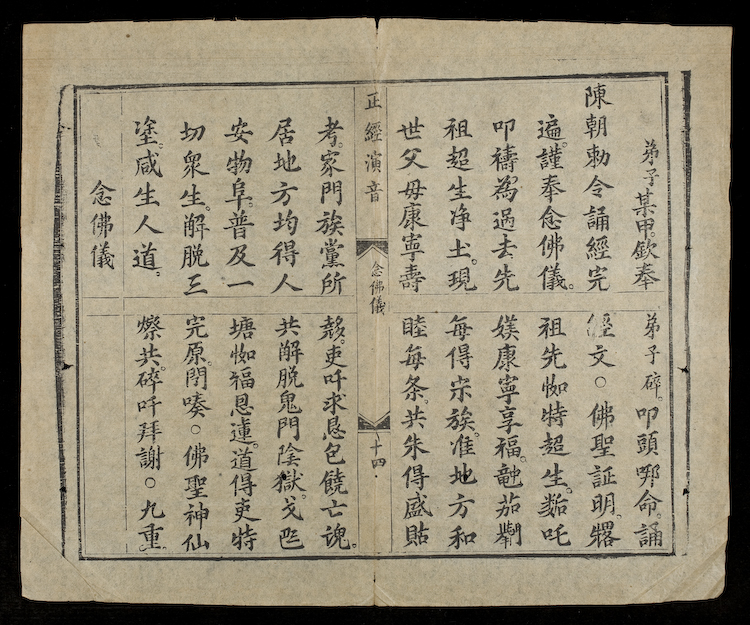 弟子某甲。欽奉
陳朝勅令誦經完
遍。謹奉念佛儀。
叩禱為過去先
祖超生净土。現
世父母康寧壽
正經演音
念佛儀
十四
考。家門族黨所
居地方均得人
安物阜。普及一
切衆生。解脱三
塗。咸生人道。
念佛儀
弟子碎。叩頭命。誦
經文○佛聖証明。
祖先特超生。吒
媄康寧享福。茄
每得宗族。准地方和
睦每条。共朱得盛
吏吀求恳包饒亡魂。
共解脱鬼門陰獄。戈
塘福恩蓮。道得吏特
完原○佛聖神仙
共。碎吀拜謝○九重。